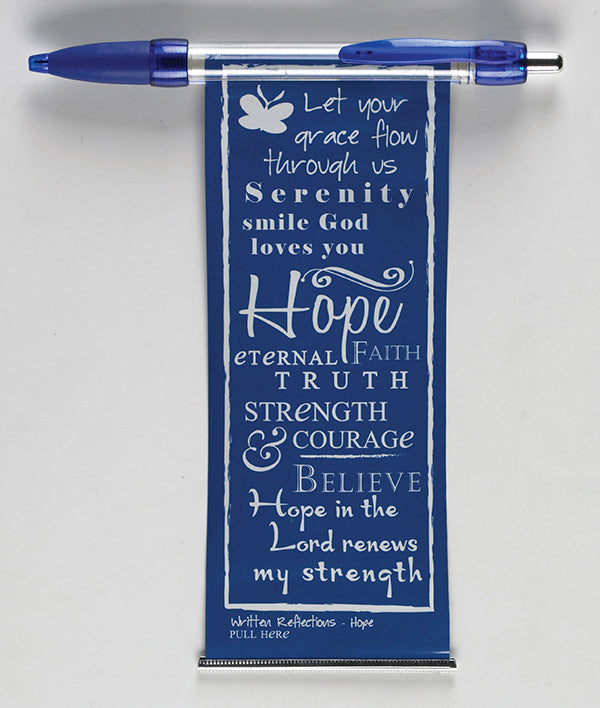 Let your
grace flow
through us
Serenity
smile God
loves you
Hope
eTeRNAL FAITH
TRUTH
STReNGTH
& COURAGe
BELIEVE
Hope in the
Lord renews
my strength
Written Reflections - Hope
PULL HeRe